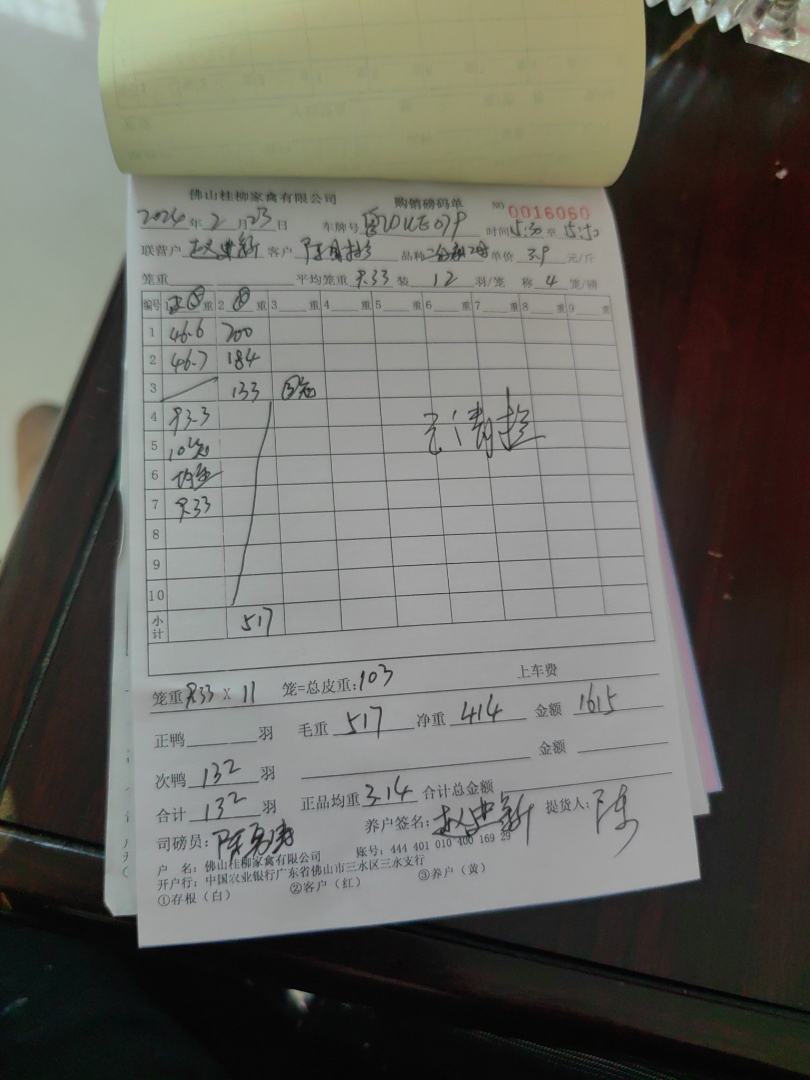 佛山桂柳家禽有限公司 购销磅码单 NO 0016060
2024年2月23日 车牌号 时间 15:30 至 15:50
联营户 赵忠新 客户 陈 品种 单价 3.9 元/斤
笼重 平均笼重 9.33 装 12 羽/笼 称 4 笼/磅
编号 1 重 2 重 3 重 4 重 5 重 6 重 7 重 8 重 9 重
1 46.6 200
2 46.7 184
3 133 3笼
4 93.3
5 10笼
6 均重
7 9.33
8
9
10
小计 517
笼重 9.33 X 11 笼=总皮重:103 上车费
正鸭 羽 毛重 517 净重 414 金额 1615
次鸭 132 羽 金额
合计 132 羽 正品均重 3.14 合计总金额
司磅员: 养户签名: 赵忠新 提货人: 陈
户 名: 佛山桂柳家禽有限公司 账号: 444 401 010 400 169 29
开户行: 中国农业银行广东省佛山市三水区三水支行
①存根(白) ②客户(红) ③养户(黄)